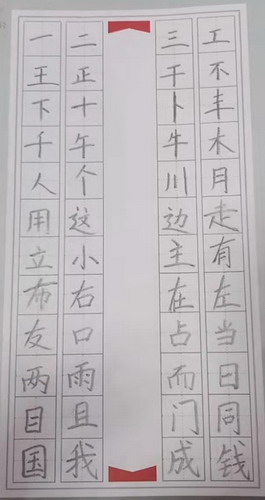 一二三工
王正干不
下十卜丰
千午牛木
人个川月
用这边走
立小主有
布右在左
友口占当
两雨而日
目且门同
国我成钱